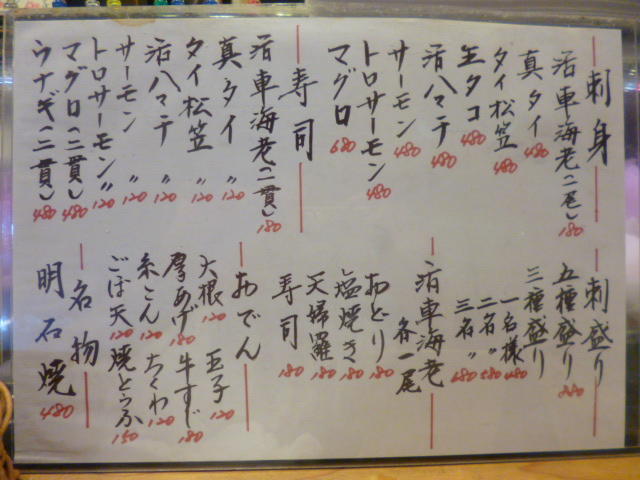 刺身
活車海老(二尾) 180
真タイ 480
タイ松笠 480
生タコ 480
活ハマチ 480
サーモン 480
トロサーモン 480
マグロ 680
寿司
活車海老(一貫) 180
真タイ 〃 120
タイ松笠 〃 120
活ハマチ 〃 120
サーモン 〃 120
トロサーモン 〃 120
マグロ(二貫) 480
ウナギ(二貫) 480
刺盛り
五種盛り
三種盛り
一名様 480
二名〃 580
三名〃 680
活車海老 各一尾
おどり 180
塩焼き 180
天婦羅 180
寿司 180
おでん
大根 120
玉子 120
厚あげ 180
牛すじ 180
糸こん 120
ちくわ 120
ごぼ天 120
焼とうふ 150
名物
明石焼 480